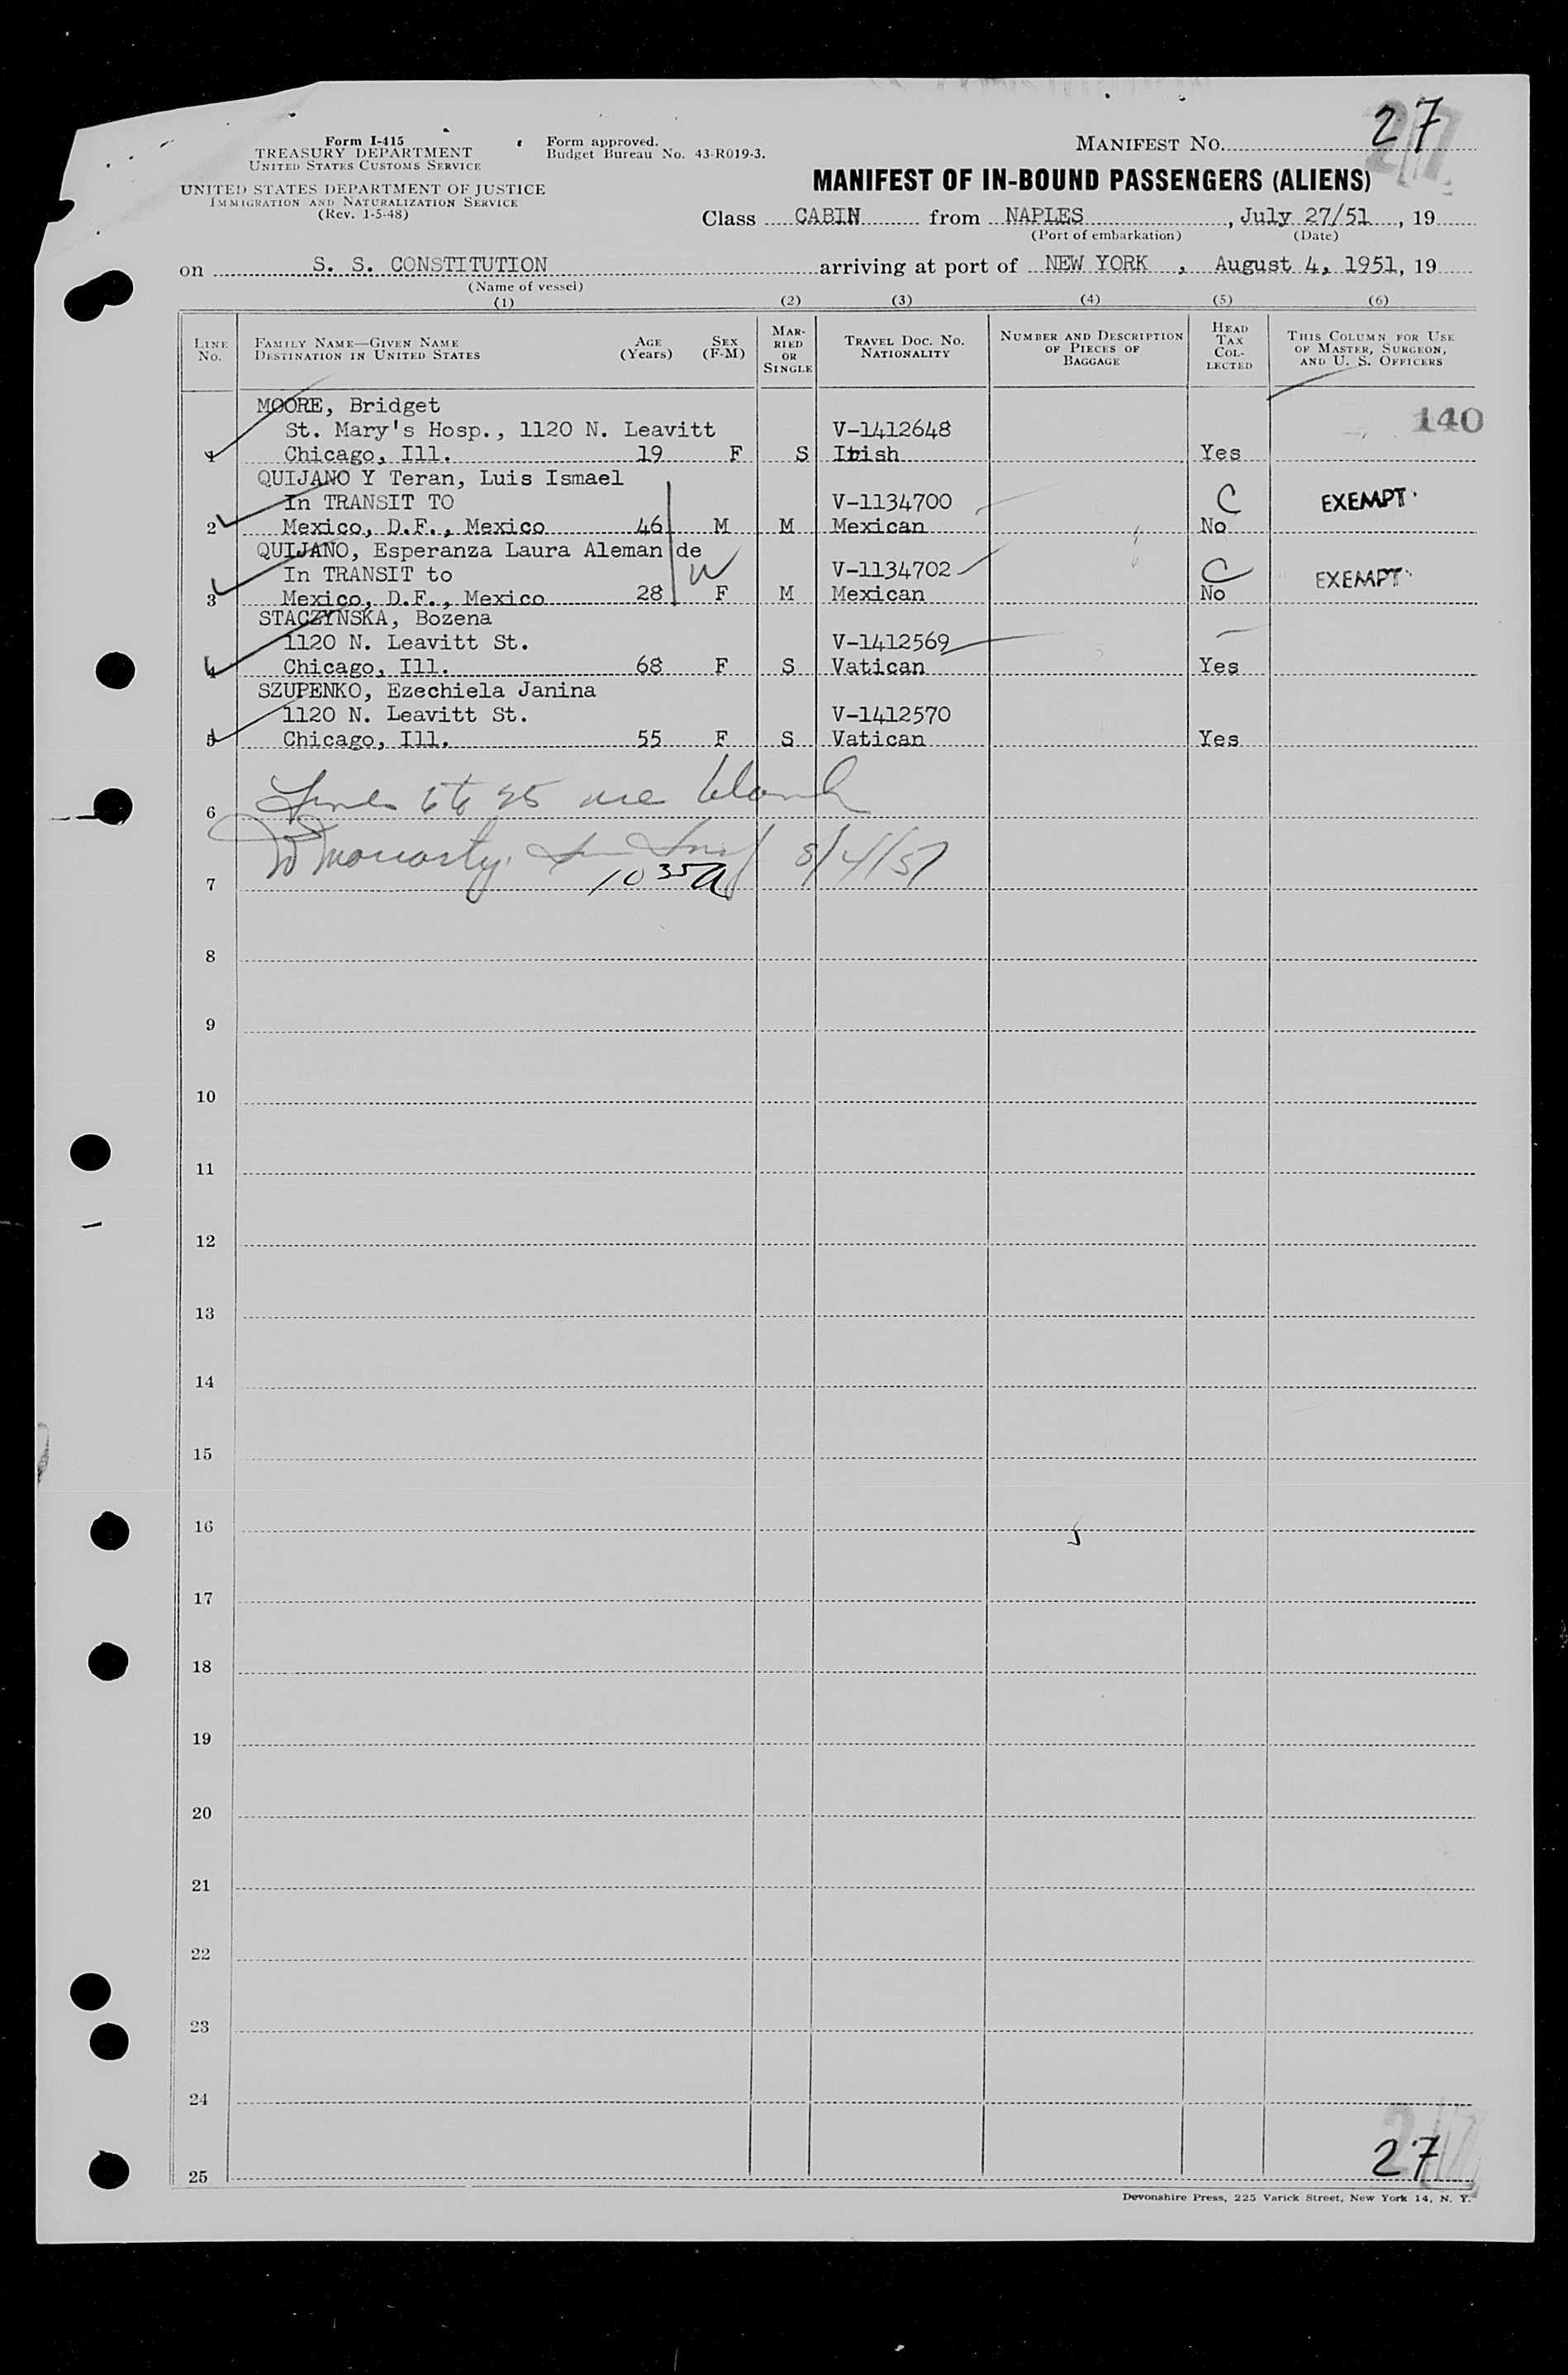 Form I-415
TREASURY DEPARTMENT
UNITED STATES CUSTOMS SERVICE
UNITED STATES DEPARTMENT OF JUSTICE
IMMIGRATION AND NATURALIZATION SERVICE
(Rev. 1-5-48)
Form approved.
Budget Bureau No. 43-R019-3.
MANIFEST NO. 27
MANIFEST OF IN-BOUND PASSENGERS (ALIENS)
Class CABIN from NAPLES, July 27/51, 19
(Port of embarkation) (Date)
on S. S. CONSTITUTION arriving at port of NEW YORK, August 4, 1951, 19
(Name of vessel)
(1) (2) (3) (4) (5) (6)
LINE NO.
FAMILY NAME—GIVEN NAME
DESTINATION IN UNITED STATES
AGE (Years)
SEX (F-M)
MARRIED OR SINGLE
TRAVEL DOC. NO.
NATIONALITY
NUMBER AND DESCRIPTION OF PIECES OF BAGGAGE
HEAD TAX COLLECTED
THIS COLUMN FOR USE OF MASTER, SURGEON, AND U. S. OFFICERS
140
MOORE, Bridget
St. Mary's Hosp., 1120 N. Leavitt V-1412648
1 Chicago, Ill. 19 F S Irish Yes
QUIJANO Y Teran, Luis Ismael
In TRANSIT TO V-1134700 C EXEMPT
2 Mexico, D.F., Mexico 46 M M Mexican No
QUIJANO, Esperanza Laura Aleman de
In TRANSIT to V-1134702 C EXEMPT
3 Mexico, D.F., Mexico 28 F M Mexican No
STACZYNSKA, Bozena
1120 N. Leavitt St. V-1412569
4 Chicago, Ill. 68 F S Vatican Yes
SZUPENKO, Ezechiela Janina
1120 N. Leavitt St. V-1412570
5 Chicago, Ill. 55 F S Vatican Yes
6 Lines 6 to 25 are blank
7 Moriarty 8/4/51
1035a
8
9
10
11
12
13
14
15
16
17
18
19
20
21
22
23
24
25
27
Devonshire Press, 225 Varick Street, New York 14, N. Y.